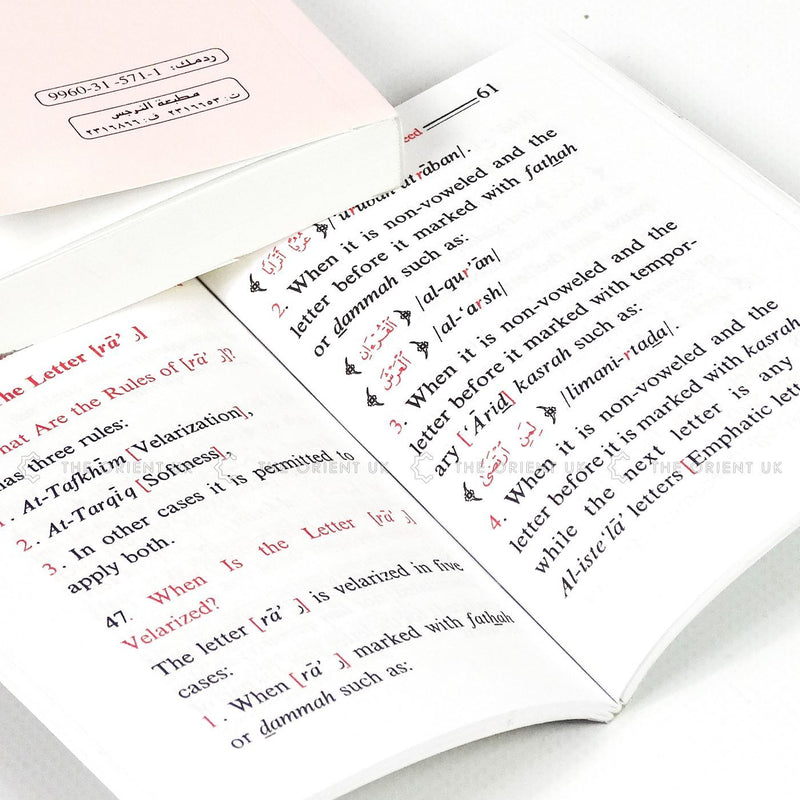 ردمك: 1-571-31-9960
مطبعة النرجس
ت: ٢٣١٦٦٥٣ ف: ٢٣١٦٨٦٦
The Letter [rā’ ر]
What Are the Rules of [rā’ ر]?
has three rules:
1. At-Tafkhīm [Velarization],
2. At-Tarqīq [Softness],
3. In other cases it is permitted to
apply both.
47. When Is the Letter [rā’ ر]
Velarized?
The letter [rā’ ر] is velarized in five
cases:
1. When [rā’ ر] marked with fathah
or dammah such as:
61
﴿عُرُبًا أَتْرَابًا﴾ /‘uruban atrāban/.
2. When it is non-voweled and the
letter before it marked with fathah
or dammah such as:
﴿الْقُرْءَانِ﴾ /al-qur’ān/
﴿الْعَرْشِ﴾ /al-‘arsh/
3. When it is non-voweled and the
letter before it marked with tempor-
ary [‘Āriḍ] kasrah such as:
﴿لِمَنِ ٱرْتَضَىٰ﴾ /limani-rtaḍa/.
4. When it is non-voweled and the
letter before it is marked with kasrah
while the next letter is any
Al-iste‘lā’ letters [Emphatic
THE ORIENT UK THE ORIENT UK THE ORIENT UK